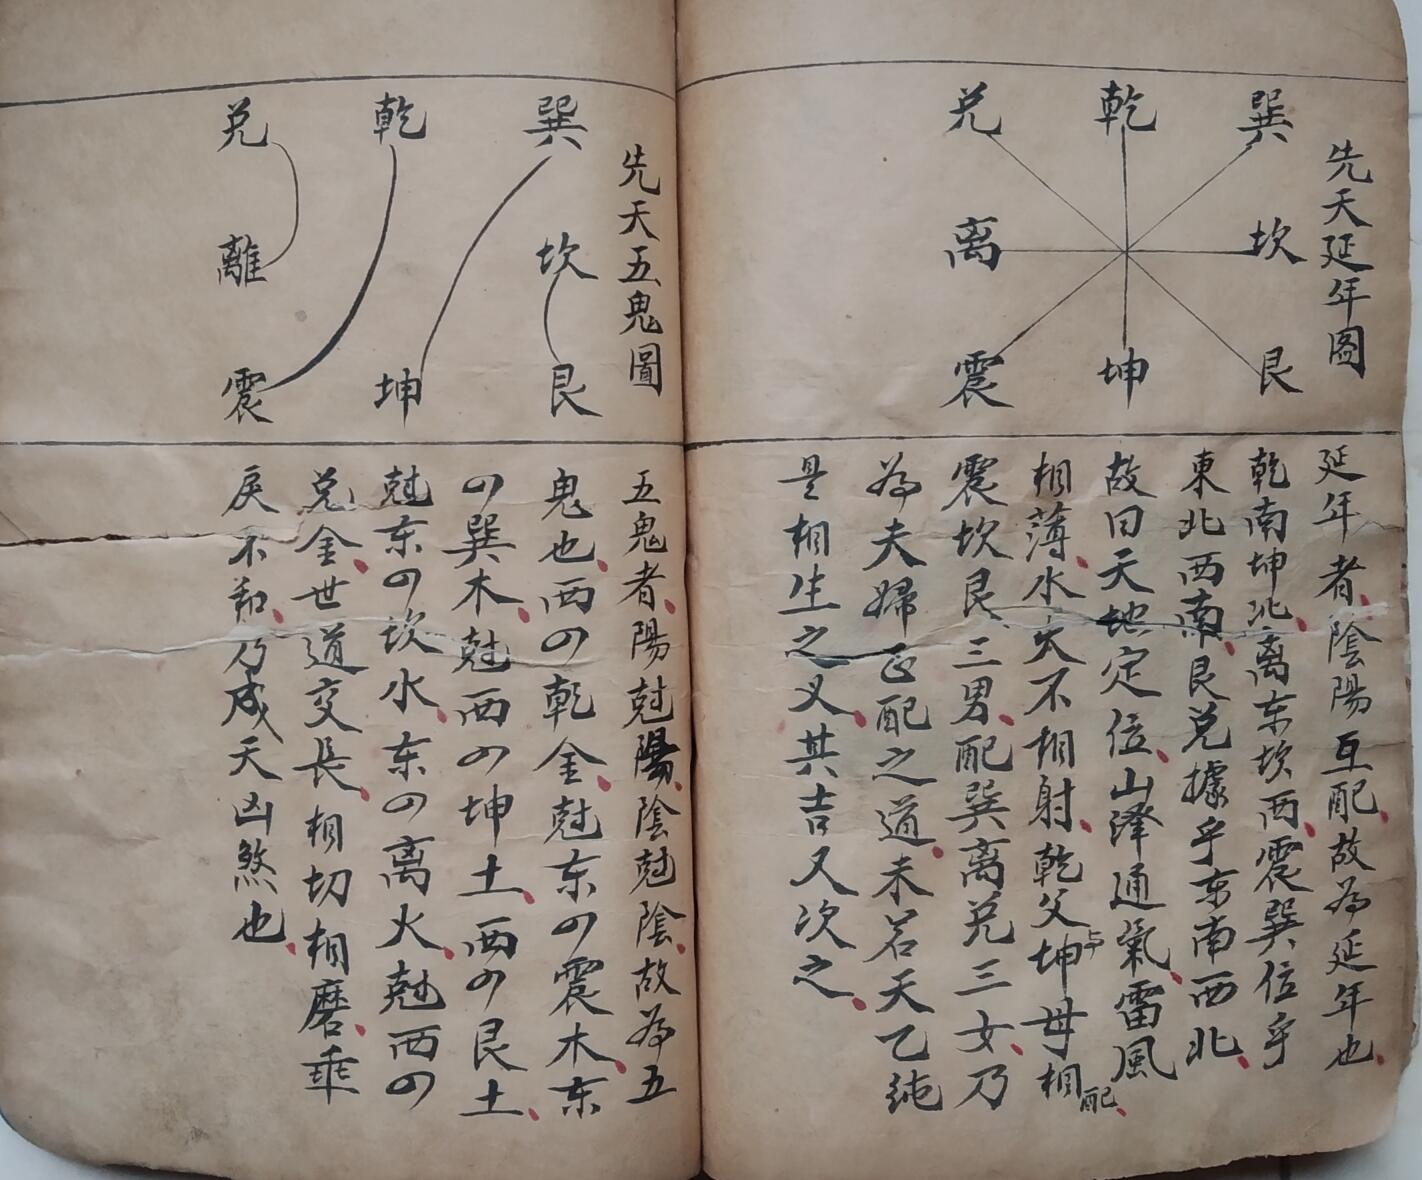 先天延年图
巽 乾 兑
坎 离
艮 坤 震
延年者、陰陽互配、故為延年也、
乾南坤北、离东坎西、震巽位乎
東北西南、艮兑據乎东南西北、
故曰天地定位、山澤通氣、雷風
相薄、水火不相射、乾父与坤母相配、
震坎艮三男、配巽离兑三女、乃
為夫婦正配之道、未若天乙純
是相生之义、其吉又次之、
先天五鬼圖
巽 乾 兑
坎 離
艮 坤 震
五鬼者、陽尅陽、陰尅陰、故為五
鬼也、西四乾金、尅东四震木、东
四巽木、尅西四坤土、西四艮土、
尅东四坎水、东四离火、尅西四
兑金、世道交長、相切相磨、乖
戾不和、乃成天凶煞也、